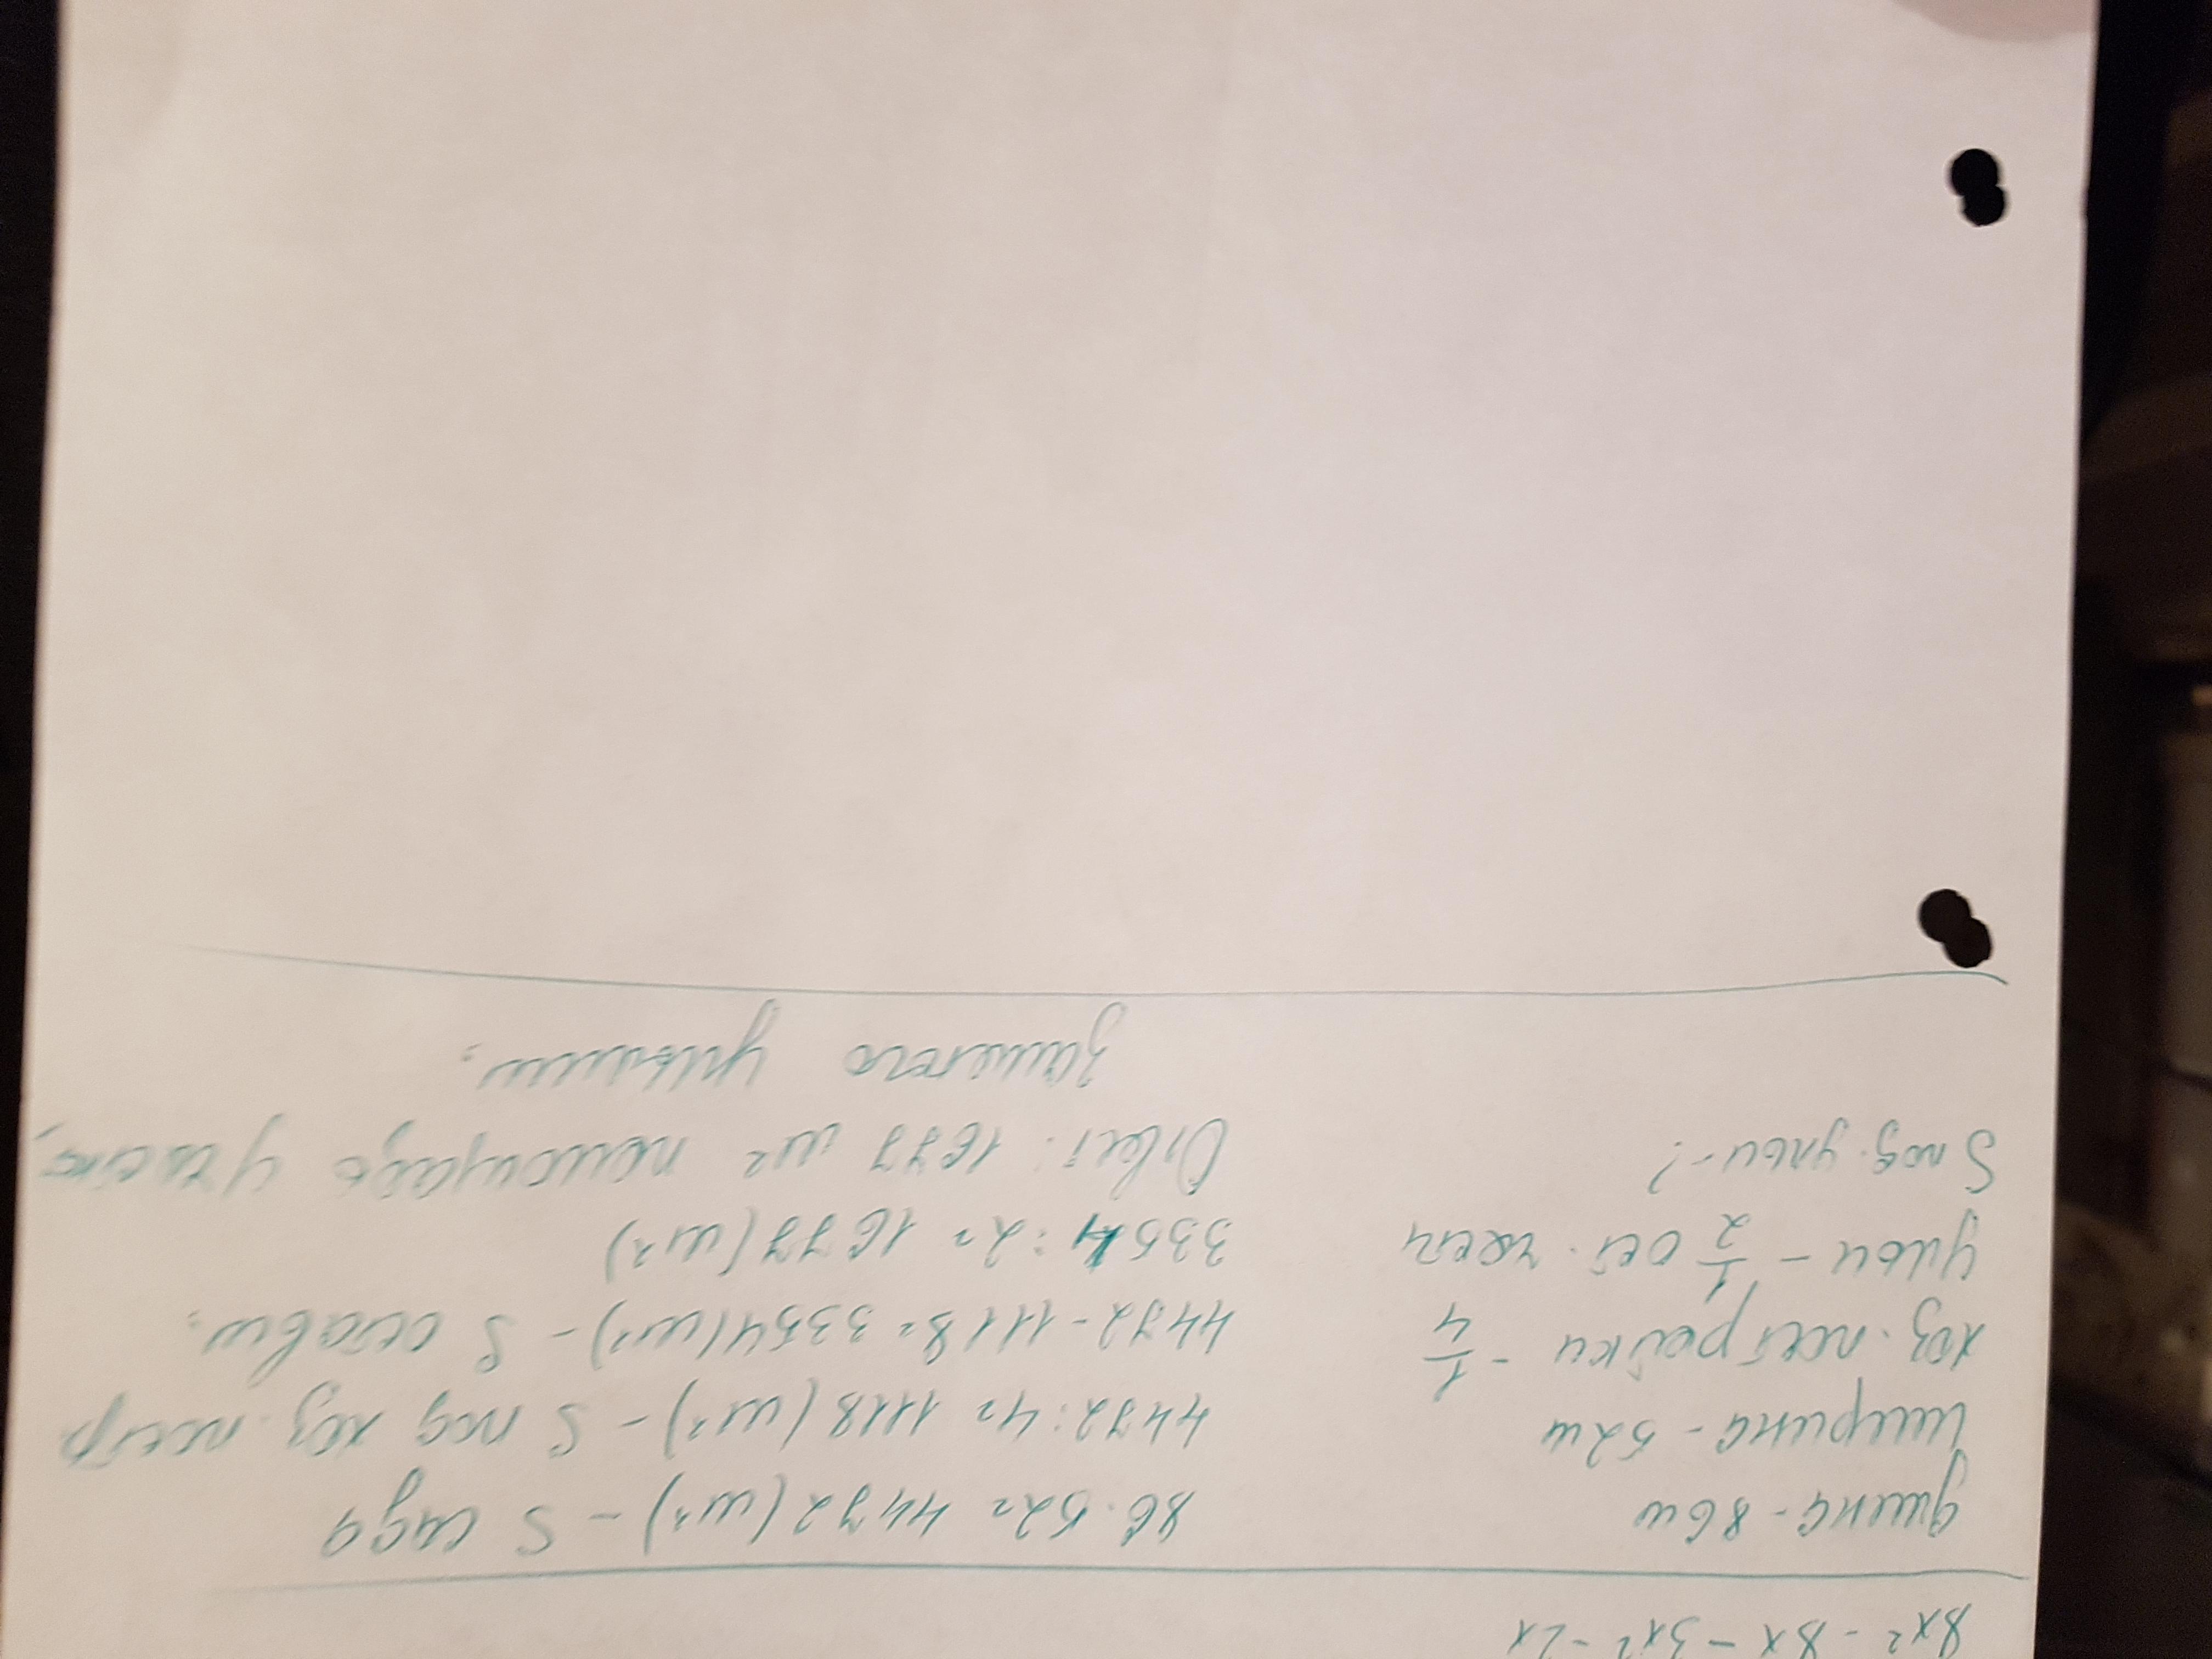 8x² - 8x - 3x² - 2x
длина - 86м
ширина - 52м
хоз. постройки - 1/4
ульи - 1/2 ост. части
S под ульи - ?
86 · 52 = 4472 (м²) - S сада
4472 : 4 = 1118 (м²) - S под хоз. постр
4472 - 1118 = 3354 (м²) - S оставш.
3354 : 2 = 1677 (м²)
Ответ: 1677 м² площадь участка,
занятого ульями.